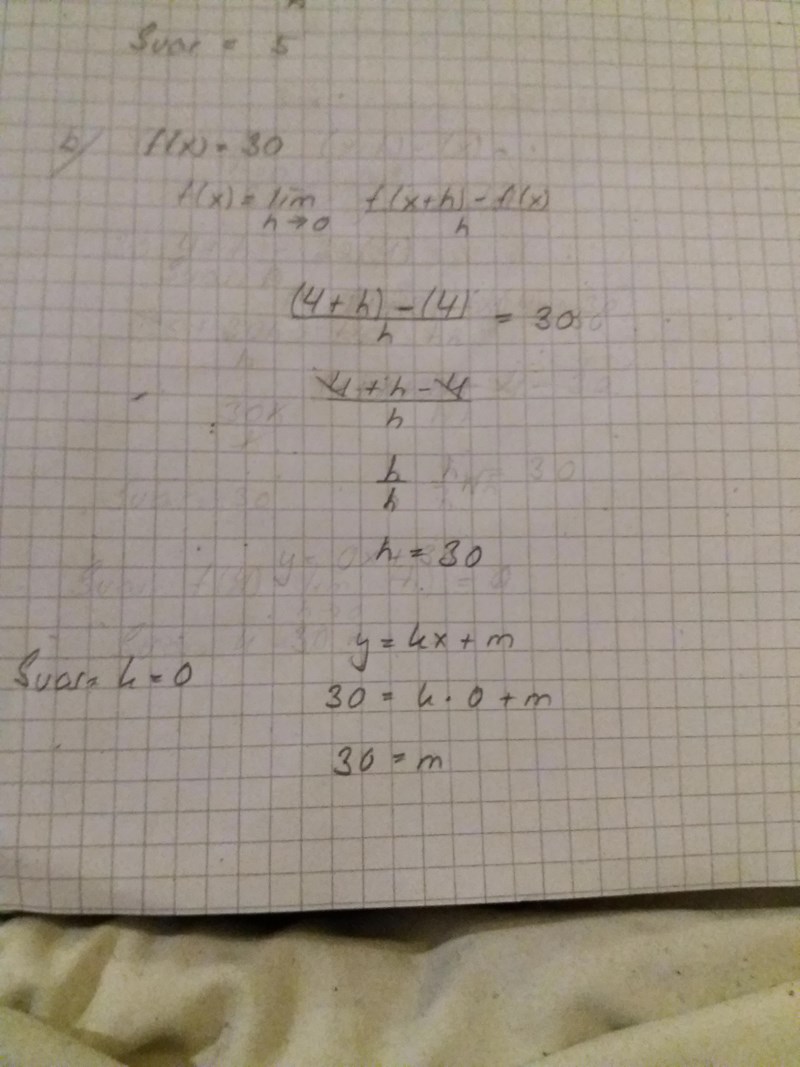 Svar = 5
b) f(x) = 30
f'(x) = lim h→0 f(x+h) - f(x) / h
(4+h) - (4) / h = 30
4 + h - 4 / h
h / h
h = 30
y = kx + m
Svar = k = 0
30 = k · 0 + m
30 = m